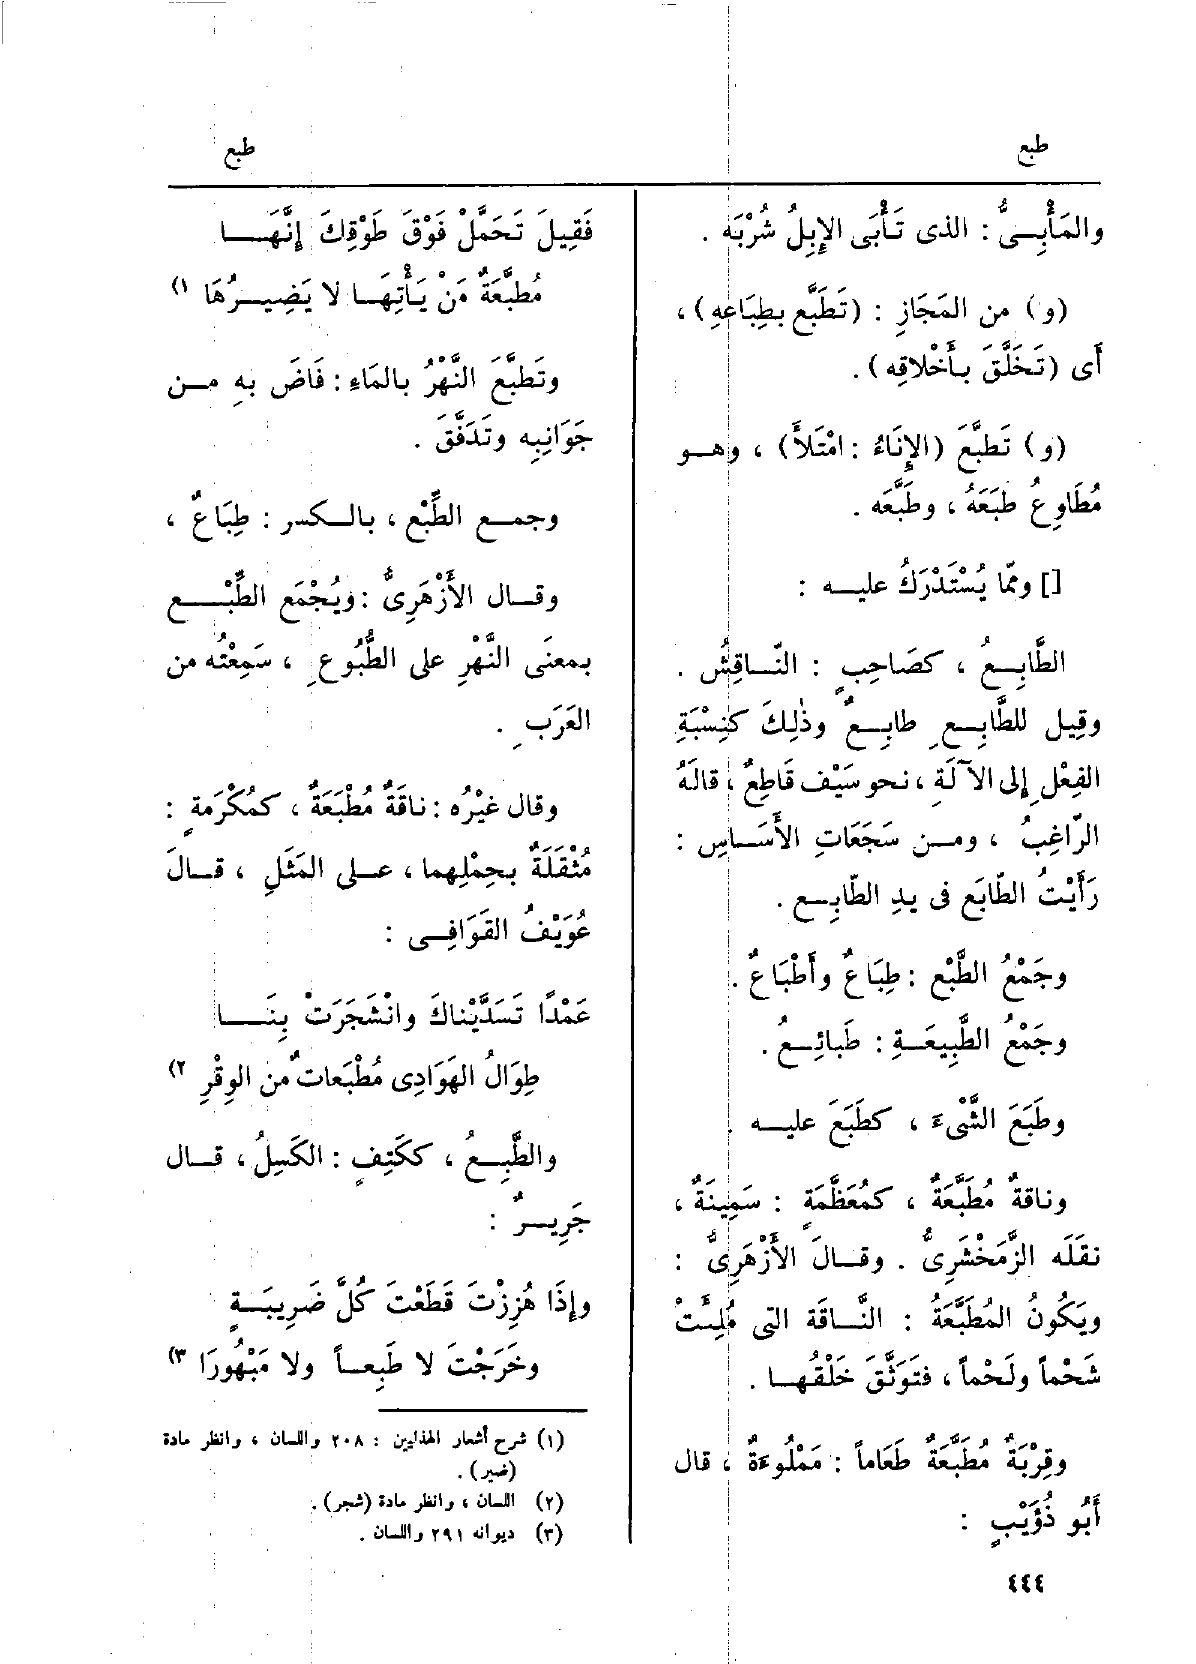 طبع
طبع
والمَأْبِىُّ : الذى تَأْبَى الإِبِلُ شُرْبَه .
(و) من المَجَازِ : (تَطَبَّع بطِبَاعِهِ) ،
أَى (تَخَلَّقَ بأَخْلاقِه) .
(و) تَطَبَّعَ (الإِنَاءُ : امْتَلأَ) ، وهو
مُطَاوِعُ طَبَعَهُ ، وطَبَّعَه .
[] وممّا يُسْتَدْرَكُ عليه :
الطَّابِعُ ، كصَاحِبٍ : النّاقِشُ .
وقِيل للطَّابِعِ طابِعٌ وذٰلِكَ كنِسْبَةِ
الفِعْلِ إِلى الآلَةِ ، نحو سَيْف قَاطِعٌ ، قالَهُ
الرّاغِبُ ، ومن سَجَعَاتِ الأَسَاسِ :
رَأَيْتُ الطّابَع فى يدِ الطّابِع .
وجَمْعُ الطَّبْع : طِبَاعٌ وأَطْبَاعٌ .
وجَمْعُ الطَّبِيعَةِ : طَبائِعُ .
وطَبَعَ الشَّىْءَ ، كطَبَعَ عليه .
وناقةٌ مُطَبَّعَةٌ ، كمُعَظَّمَةٍ : سَمِينَةٌ ،
نقَلَه الزَّمَخْشَرِىُّ . وقالَ الأَزْهَرِىُّ :
ويَكُونُ المُطَبَّعَةُ : النَّاقَة التى مُلِئَتْ
شَحْماً ولَحْماً ، فتَوَثَّقَ خَلْقُها .
وقِرْبَةٌ مُطَبَّعَةٌ طَعَاماً : مَمْلُوءَةٌ ، قال
أَبُو ذُؤَيْبٍ :
فَقِيلَ تَحَمَّلْ فَوْقَ طَوْقِكَ إِنَّهَا
مُطَبَّعَةٌ مَنْ يَأْتِهَا لا يَضِيرُهَا (١)
وتَطبَّعَ النَّهْرُ بالمَاءِ : فَاضَ بهِ من
جَوَانِبِه وتَدَفَّقَ .
وجمع الطِّبْع ، بالكسر : طِبَاعٌ ،
وقال الأَزْهَرِىُّ : ويُجْمَع الطِّبْع
بمعنَى النَّهْرِ على الطُّبُوعِ ، سَمِعْتُه من
العَرَبِ .
وقال غيْرُه : ناقَةٌ مُطْبَعَةٌ ، كمُكْرَمَةٍ :
مُثْقَلَةٌ بحِمْلِهما ، على المَثَلِ ، قالَ
عُوَيْفُ القَوَافِى :
عَمْدًا تَسَدَّيْناكَ وانْشَجَرَتْ بِنَا
طِوَالُ الهَوَادِى مُطْبَعاتٌ من الوِقْرِ (٢)
والطَّبِعُ ، ككَتِفٍ : الكَسِلُ ، قال
جَرِيرٌ :
وإِذَا هُزِزْتَ قَطَعْتَ كُلَّ ضَرِيبَةٍ
وخَرَجْتَ لا طَبِعاً ولا مَبْهُورَا (٣)
(١) شرح أشعار الهذليين : ٢٠٨ واللسان ، وانظر مادة
(ضير) .
(٢) اللسان ، وانظر مادة (شجر) .
(٣) ديوانه ٢٩١ واللسان .
٤٤٤